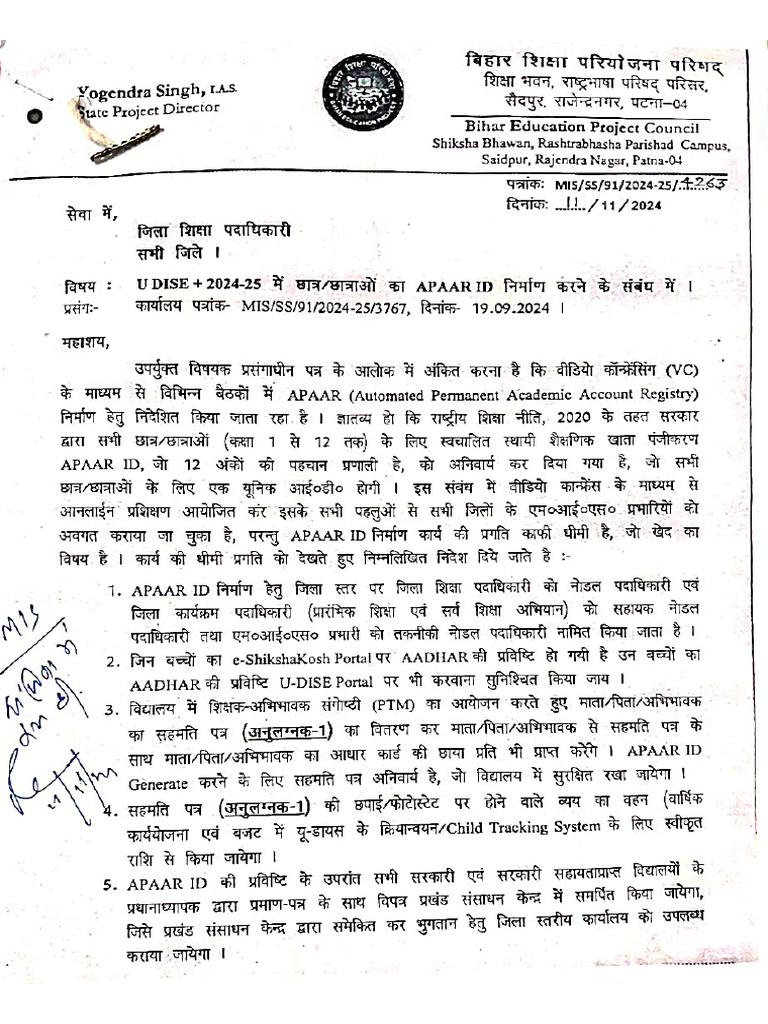 Yogendra Singh, I.A.S.
State Project Director
बिहार शिक्षा परियोजना परिषद्
शिक्षा भवन, राष्ट्रभाषा परिषद् परिसर,
सैदपुर, राजेन्द्रनगर, पटना–04
Bihar Education Project Council
Shiksha Bhawan, Rashtrabhasha Parishad Campus,
Saidpur, Rajendra Nagar, Patna-04
पत्रांकः MIS/SS/91/2024-25/4263
दिनांकः 11/11/2024
सेवा में,
जिला शिक्षा पदाधिकारी
सभी जिले ।
विषय : U DISE + 2024-25 में छात्र/छात्राओं का APAAR ID निर्माण करने के संबंध में ।
प्रसंगः- कार्यालय पत्रांक- MIS/SS/91/2024-25/3767, दिनांक- 19.09.2024 ।
महाशय,
उपर्युक्त विषयक प्रसंगाधीन पत्र के आलोक में अंकित करना है कि वीडियो कॉन्फ्रेंसिंग (VC)
के माध्यम से विभिन्न बैठकों में APAAR (Automated Permanent Academic Account Registry)
निर्माण हेतु निदेशित किया जाता रहा है । ज्ञातव्य हो कि राष्ट्रीय शिक्षा नीति, 2020 के तहत सरकार
द्वारा सभी छात्र/छात्राओं (कक्षा 1 से 12 तक) के लिए स्वचालित स्थायी शैक्षणिक खाता पंजीकरण
APAAR ID, जो 12 अंकों की पहचान प्रणाली है, को अनिवार्य कर दिया गया है, जो सभी
छात्र/छात्राओं के लिए एक यूनिक आई०डी० होगी । इस संबंध में वीडियो कान्फ्रेंस के माध्यम से
आनलाईन प्रशिक्षण आयोजित कर इसके सभी पहलुओं से सभी जिलों के एम०आई०एस० प्रभारियों को
अवगत कराया जा चुका है, परन्तु APAAR ID निर्माण कार्य की प्रगति काफी धीमी है, जो खेद का
विषय है । कार्य की धीमी प्रगति को देखते हुए निम्नलिखित निदेश दिये जाते है :-
1. APAAR ID निर्माण हेतु जिला स्तर पर जिला शिक्षा पदाधिकारी को नोडल पदाधिकारी एवं
जिला कार्यक्रम पदाधिकारी (प्रारंभिक शिक्षा एवं सर्व शिक्षा अभियान) को सहायक नोडल
पदाधिकारी तथा एम०आई०एस० प्रभारी को तकनीकी नोडल पदाधिकारी नामित किया जाता है ।
2. जिन बच्चों का e-ShikshaKosh Portal पर AADHAR की प्रविष्टि हो गयी है उन बच्चों का
AADHAR की प्रविष्टि U-DISE Portal पर भी करवाना सुनिश्चित किया जाय ।
3. विद्यालय में शिक्षक-अभिभावक संगोष्टी (PTM) का आयोजन करते हुए माता/पिता/अभिभावक
का सहमति पत्र (अनुलग्नक-1) का वितरण कर माता/पिता/अभिभावक से सहमति पत्र के
साथ माता/पिता/अभिभावक का आधार कार्ड की छाया प्रति भी प्राप्त करेंगे । APAAR ID
Generate करने के लिए सहमति पत्र अनिवार्य है, जो विद्यालय में सुरक्षित रखा जायेगा ।
4. सहमति पत्र (अनुलग्नक-1) की छपाई/फोटोस्टेट पर होने वाले व्यय का वहन (वार्षिक
कार्ययोजना एवं बजट में यू-डायस के क्रियान्वयन/Child Tracking System के लिए स्वीकृत
राशि से किया जायेगा ।
5. APAAR ID की प्रविष्टि के उपरांत सभी सरकारी एवं सरकारी सहायताप्राप्त विद्यालयों के
प्रधानाध्यापक द्वारा प्रमाण-पत्र के साथ विपत्र प्रखंड संसाधन केन्द्र में समर्पित किया जायेगा,
जिसे प्रखंड संसाधन केन्द्र द्वारा समेकित कर भुगतान हेतु जिला स्तरीय कार्यालय को उपलब्ध
कराया जायेगा ।
MIS